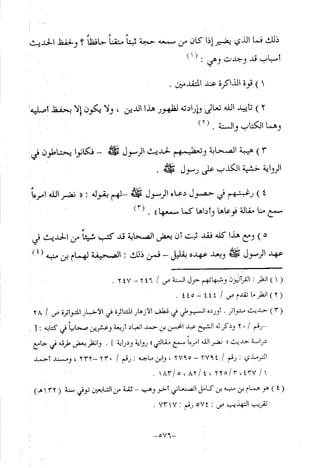 ذلك فما الذي يضير إذا كان من سمعه حجة ثبتاً متقناً حافظاً ؟ ولحفظ الحديث
أسباب قد وجدت وهي : (١)
١ ) قوة الذاكرة عند المتقدمين .
٢ ) تأييد الله تعالى وإرادته لظهور هذا الدين ، ولا يكون إلا بحفظ أصليه
وهما الكتاب والسنة . (٢)
٣ ) هيبة الصحابة وتعظيمهم لحديث الرسول ﷺ – فكانوا يحتاطون في
الرواية خشية الكذب على رسول ﷺ .
٤ ) رغبتهم في حصول دعاء الرسول ﷺ –لهم بقوله : « نضر الله امرءاً
سمع منا مقالة فوعاها وأداها كما سمعها » . (٣)
٥ ) ومع هذا كله فقد ثبت أن بعض الصحابة قد كتب شيئاً من الحديث في
عهد الرسول ﷺ وبعد عهده بقليل – فمن ذلك : الصحيفة لهمام بن منبه (٤)
(١) انظر : القرآنيون وشبهاتهم حول السنة ص / ٢٤٦ – ٢٤٧ .
(٢) انظر ما تقدم ص / ٤٤٤ – ٤٤٥ .
(٣) حديث متواتر . أورده السيوطي في قطف الأزهار المتناثرة في الأخبار المتواترة ص / ٢٨
–رقم / ٢٠ وذكر له الشيخ عبد المحسن بن حمد العباد أربعة وعشرين صحابياً في كتابه : {
دراسة حديث « نضر الله امرءاً سمع مقالتي » رواية ودراية } . وانظر بعض طرقه في جامع
الترمذي / رقم : ٢٧٩٤ – ٢٧٩٥ ، وابن ماجه : / رقم / ٢٣٠ –٢٣٢ ، ومسند أحمد
١ / ٤٣٧، ٣ / ٢٢٥ ، ٤ / ٨٢ ، ٥ / ١٨٣ .
(٤) هو همام بن منبه بن كامل الصنعاني أخو وهب – ثقة من التابعين توفي سنة (١٣٢هـ)
تقريب التهذيب ص : ٥٧٤ رقم : ٧٣١٧ .
–٥٧٦–